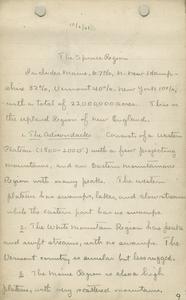 The Spruce Region
Includes Maine, 67%, N. New Hamp-
shire 52%, Vermont 40%, New York 100%,
with a total of 22,000,000 acres. This is
the upland region of New England.
1. The Adirondacks. Consist of a western
Plateau (1500-2000') with a few projecting
mountains, and an Eastern mountainous
Region with many peaks. The western
plateau has swamps, lakes, and slow streams
while the eastern part has no swamps.
2. The White Mountain Region has peaks
and swift streams, with no swamps. The
Vermont country is similar but less rugged.
3. The Maine Region is also a high
plateau, with very scattered mountains.